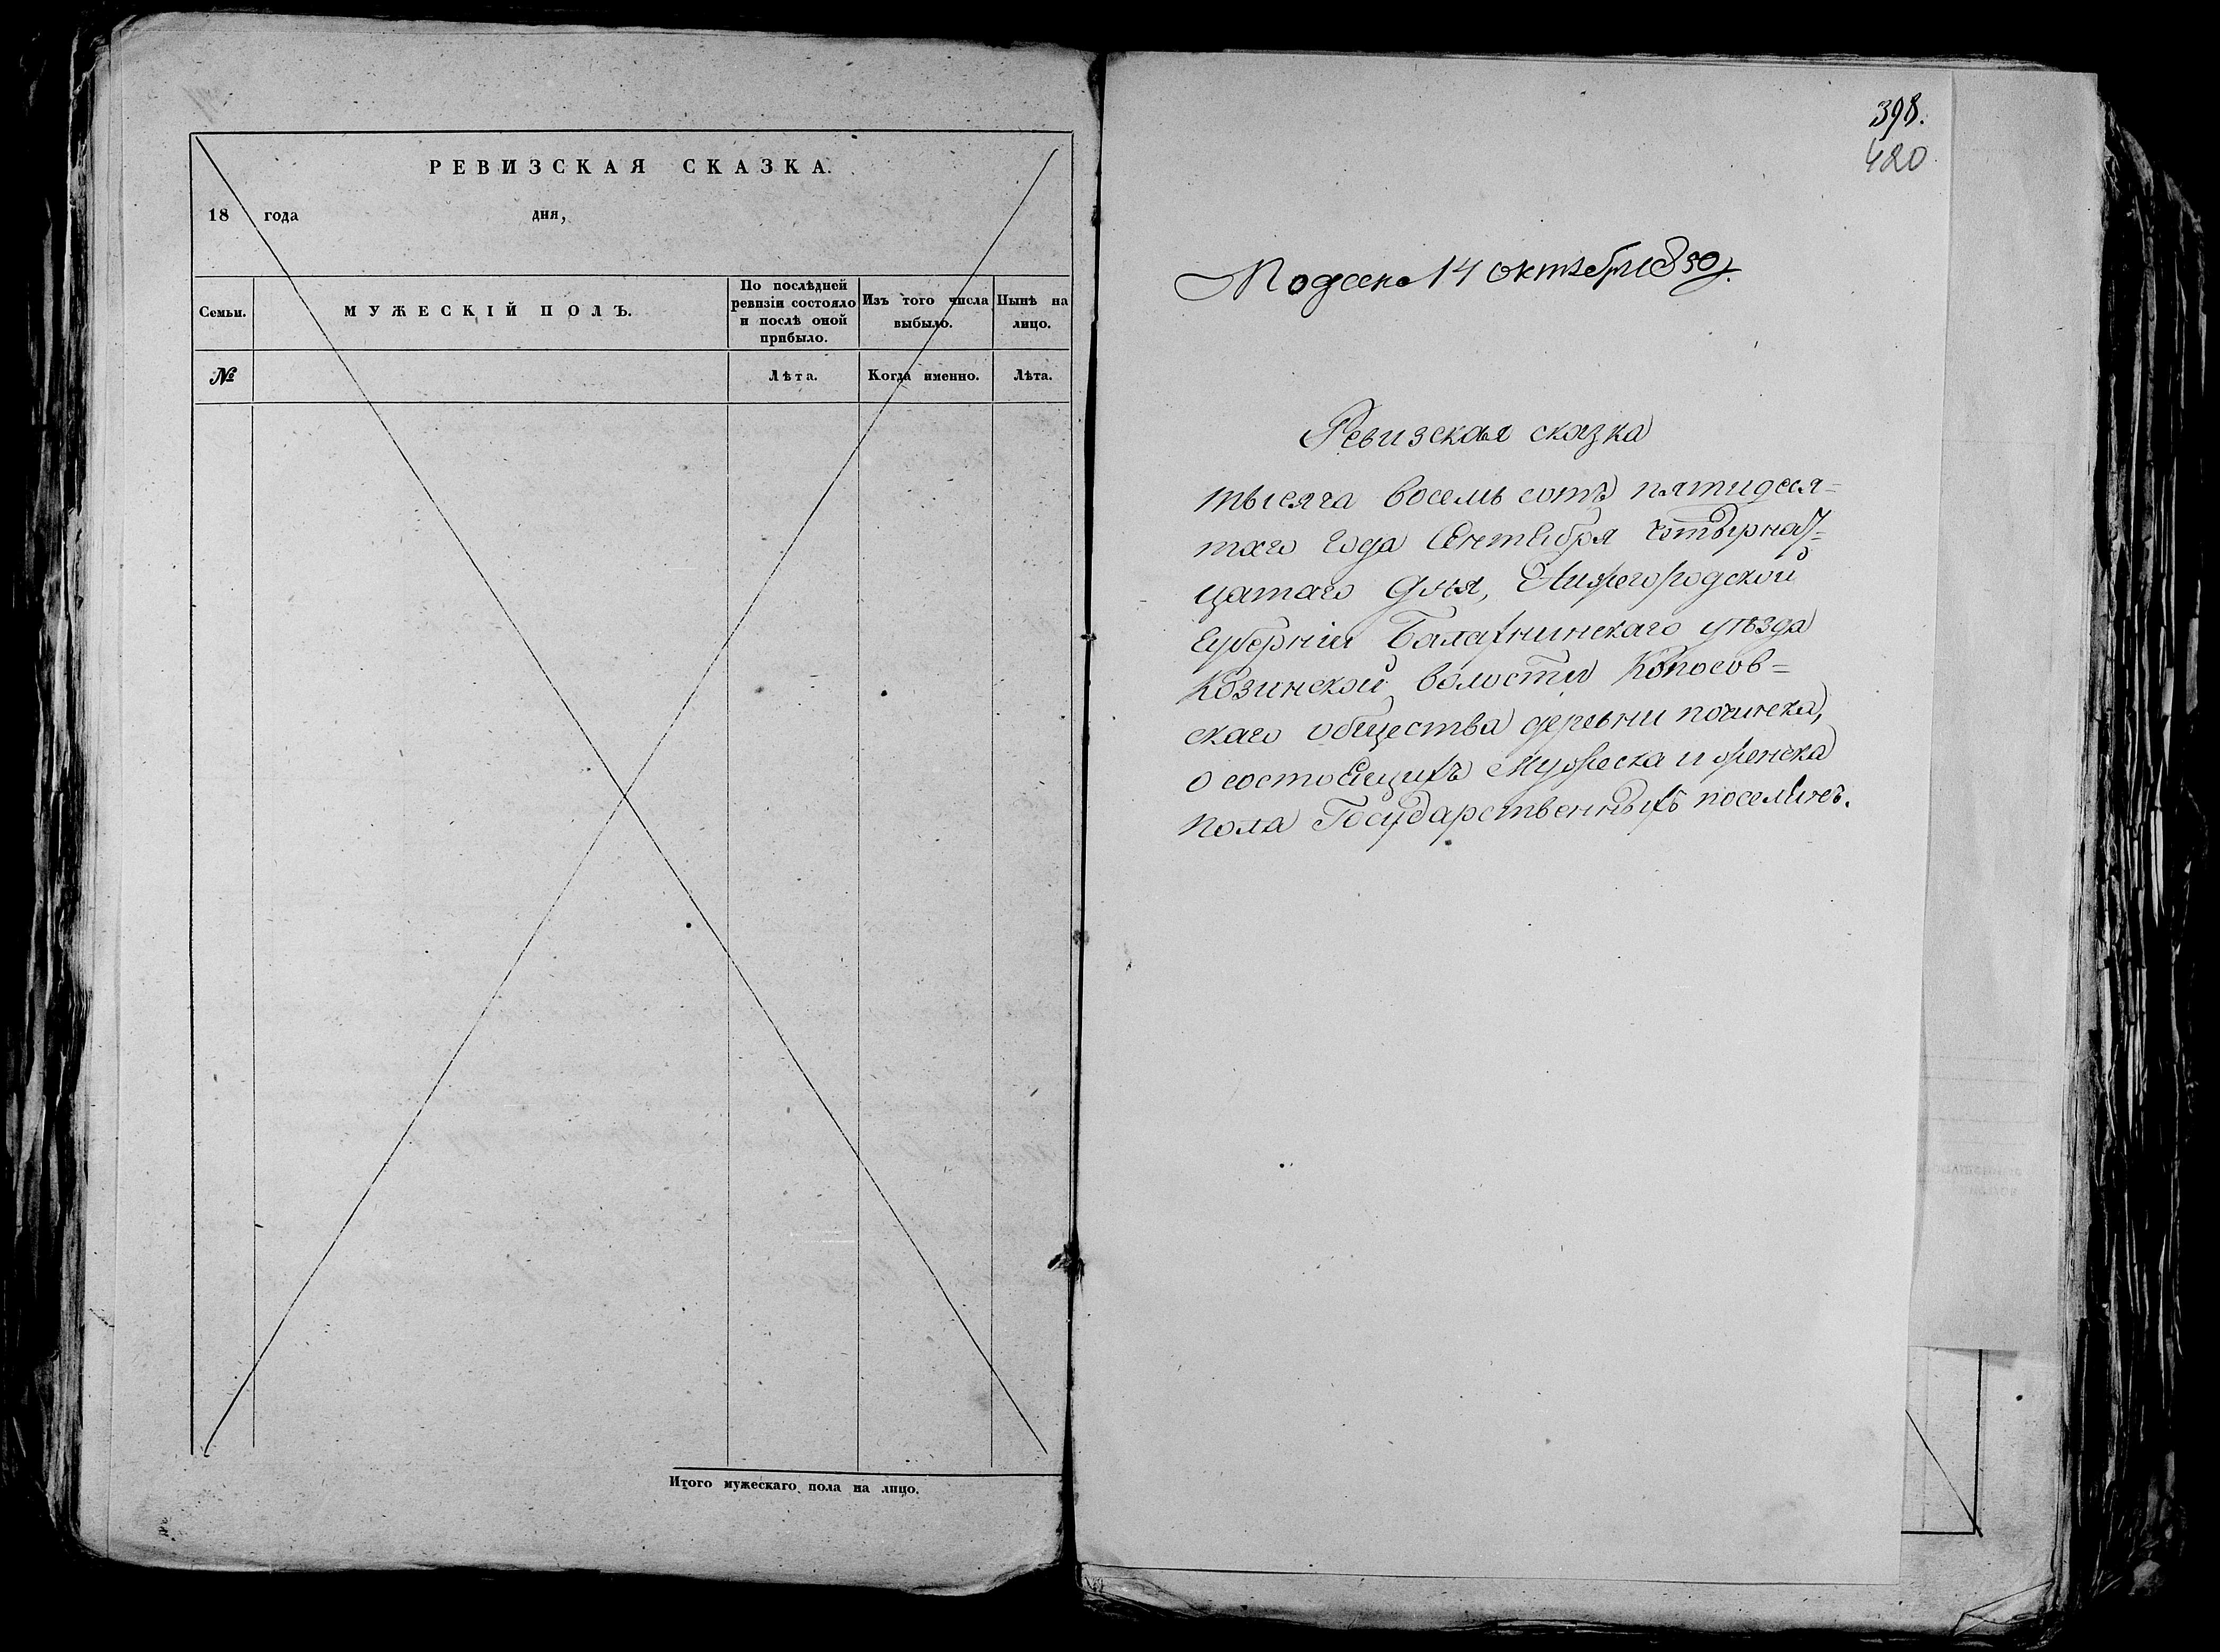 РЕВИЗСКАЯ СКАЗКА.
18 года дня,
Семьи.
МУЖЕСКІЙ ПОЛЪ.
По послѣдней
ревизіи состояло
и послѣ оной
прибыло.
Изъ того числа
выбыло.
Нынѣ на
лицо.
№
Лѣта.
Когда именно.
Лѣта.
Итого мужескаго пола на лицо.
398.
420
14 октября 1850 г.
Ревизская сказка
тысяча восемь сотъ пятидеся=
таго года Сентября четырнад=
цатаго дня, Нижегородской
Губерніи Балахнинскаго уѣзда
Козинской волости Копосов=
скаго общества деревни починка,
о состоящихъ мужеска и женска
пола Государственныхъ поселянъ.